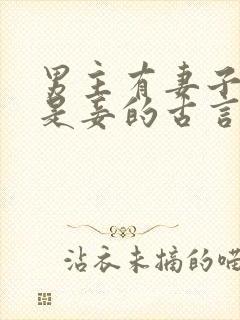 男主有妻子
是妾的古言
沾衣未摘的喵